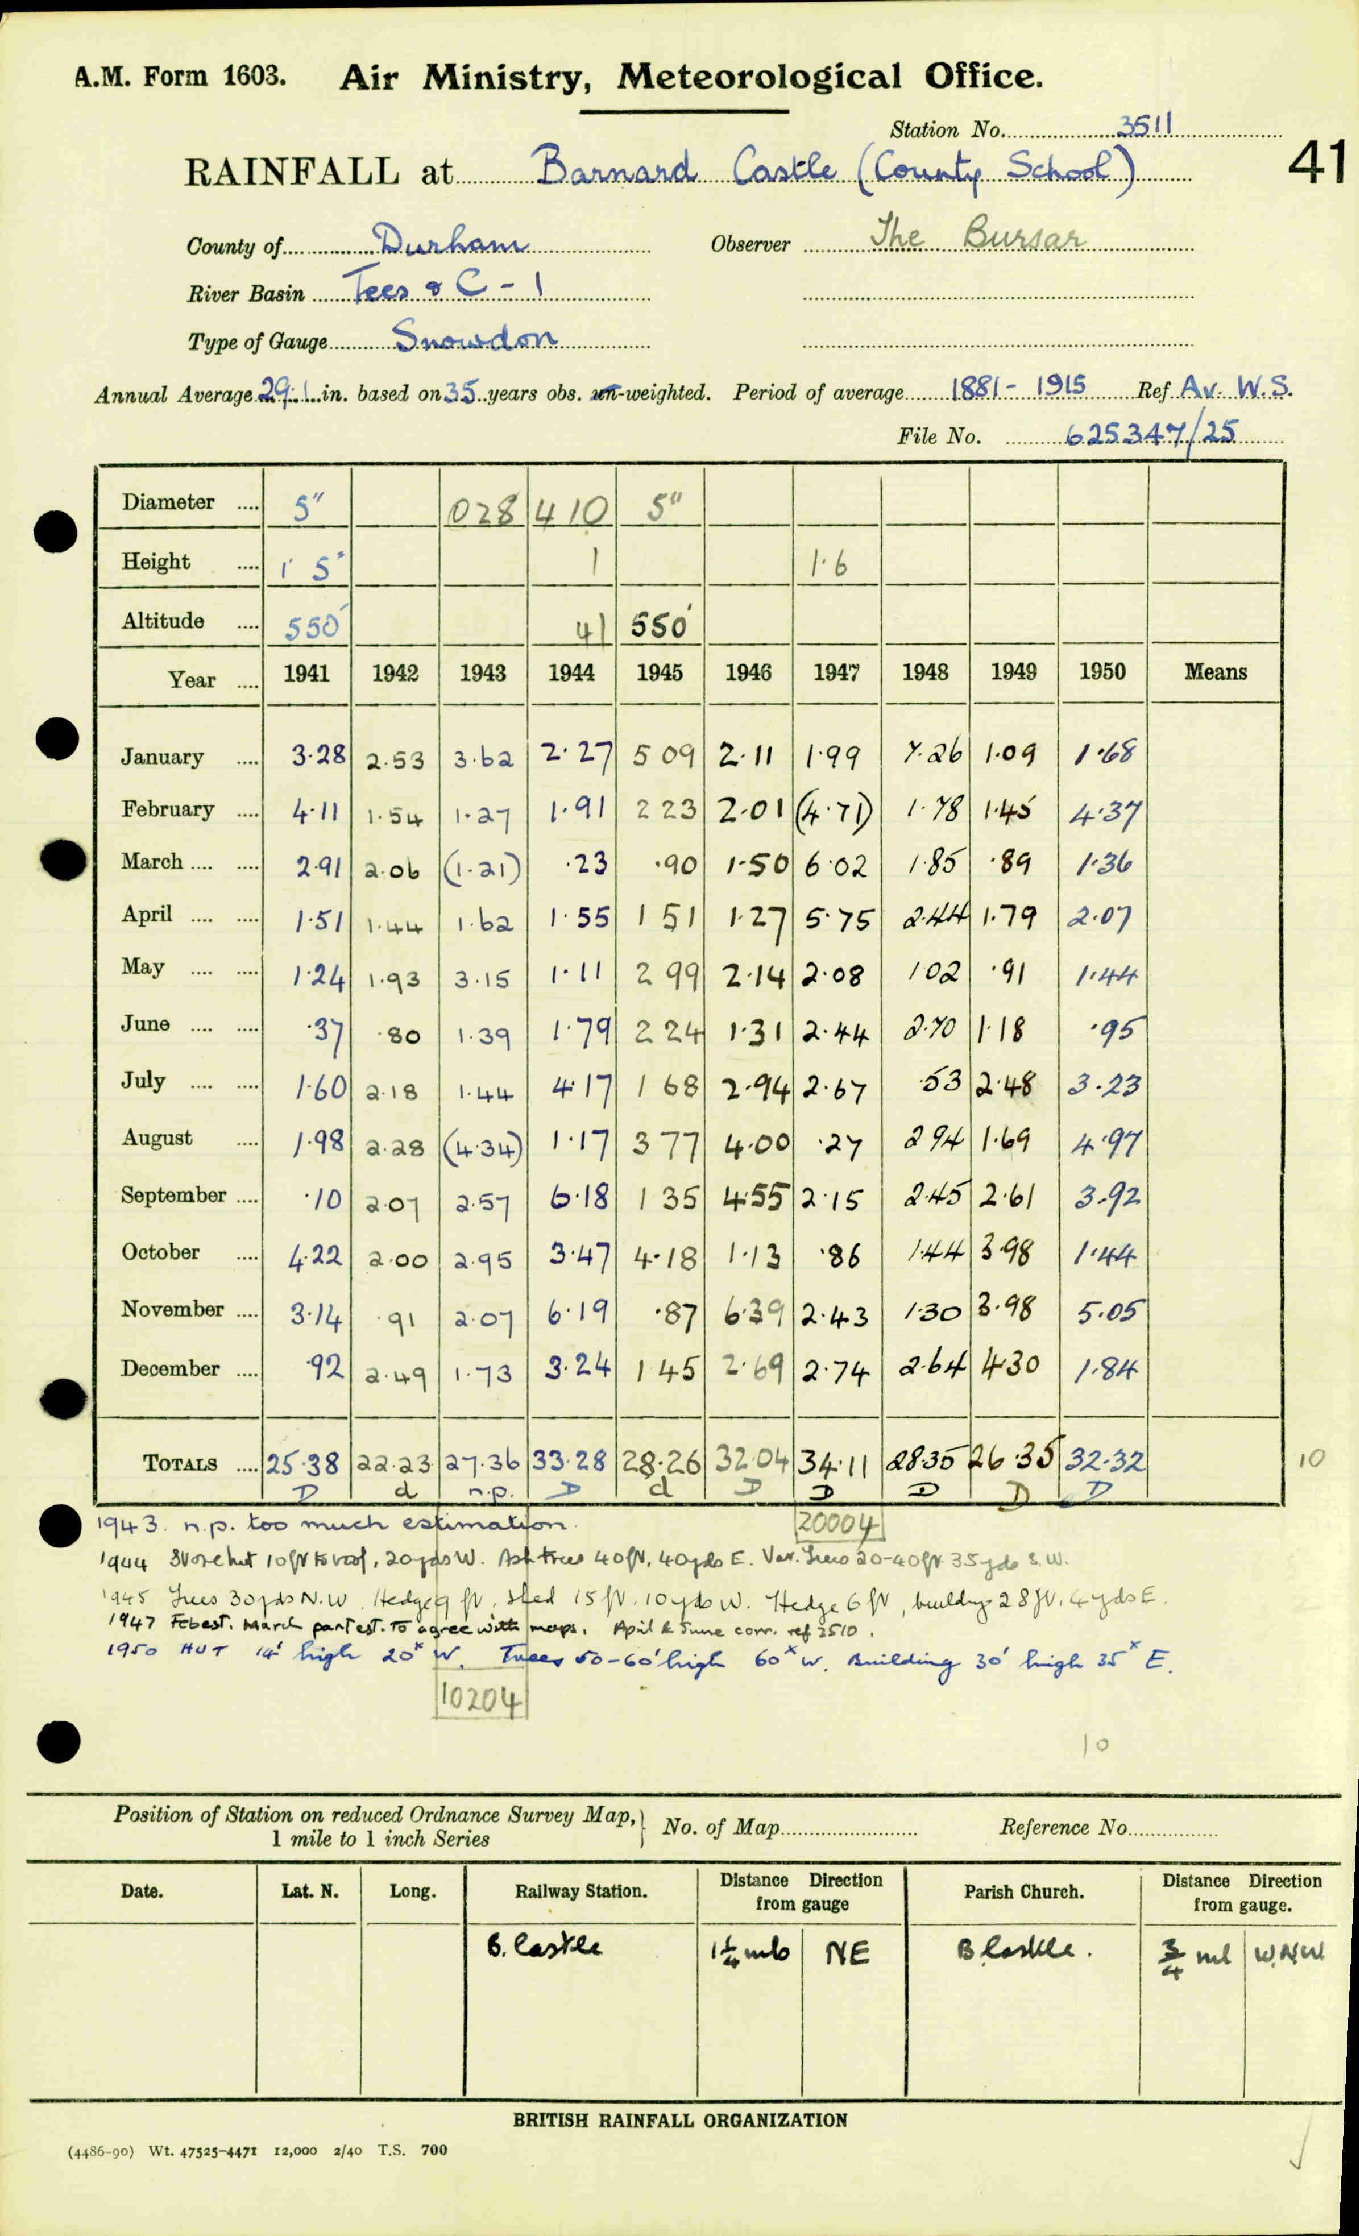 A.M. Form 1603. Air Ministry, Meteorological Office.
Station No. 3511
41
RAINFALL at Barnard Castle (County School)
County of Durham Observer The Bursar
River Basin Tees & C - 1
Type of Gauge Snowdon
Annual Average 29.1 in. based on 35 years obs. un-weighted. Period of average 1881 - 1915 Ref Av. W.S.
File No. 625347/25
Diameter 5" 028 410 5"
Height 1' 5" 1 1.6
Altitude 550' 41 550'
Year 1941 1942 1943 1944 1945 1946 1947 1948 1949 1950 Means
January 3.28 2.53 3.62 2.27 5 09 2.11 1.99 7.26 1.09 1.68
February 4.11 1.54 1.27 1.91 2 23 2.01 (4.71) 1.78 1.45 4.37
March 2.91 2.06 (1.21) .23 .90 1.50 6.02 1.85 .89 1.36
April 1.51 1.44 1.62 1.55 1 51 1.27 5.75 2.44 1.79 2.07
May 1.24 1.93 3.15 1.11 2 99 2.14 2.08 1 02 .91 1.44
June .37 .80 1.39 1.79 2 24 1.31 2.44 2.70 1.18 .95
July 1.60 2.18 1.44 4.17 1 68 2.94 2.67 .53 2.48 3.23
August 1.98 2.28 (4.34) 1.17 3 77 4.00 .27 2 94 1.69 4.97
September .10 2.07 2.57 6.18 1 35 4.55 2.15 2.45 2.61 3.92
October 4.22 2.00 2.95 3.47 4.18 1.13 .86 1.44 3.98 1.44
November 3.14 .91 2.07 6.19 .87 6.39 2.43 1.30 3.98 5.05
December .92 2.49 1.73 3.24 1 45 2.69 2.74 2.64 4.30 1.84
TOTALS 25.38 22.23 27.36 33.28 28.26 32.04 34.11 28.35 26.35 32.32 10
D d n.p. D d D D D D D
1943. n.p. too much estimation. 20004
1944 hut 10ft to roof, 20yds W. Ash trees 40ft, 40yds E. Var. Trees 20-40ft 35yds S.W.
1945 Trees 30yds N.W. Hedge 9 ft, shed 15 ft. 10yds W. Hedge 6 ft, buildings 28ft. 4yds E.
1947 Feb est. March part est. To agree with maps. April & June corr. ref 3510.
1950 HUT 14' high 20x W. Trees 50-60' high 60x W. Building 30' high 35x E.
10204
10
Position of Station on reduced Ordnance Survey Map, 1 mile to 1 inch Series No. of Map Reference No.
Date. Lat. N. Long. Railway Station. Distance Direction from gauge Parish Church. Distance Direction from gauge.
B. Castle 1¼ mls NE B. Castle. ¾ ml W.N.W
BRITISH RAINFALL ORGANIZATION
(4486-90) Wt. 47525-4471 12,000 2/40 T.S. 700